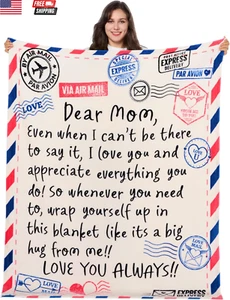 FREE
SHIPPING
BY AIR MAIL
PAR AVION
SPECIAL
EXPRESS
DELIVERY
EXPRESS
DELIVERY
PAR AVION
VIA AIR MAIL
LOVE
LOVE
Dear Mom,
Even when I can't be there
to say it, I love you and
appreciate everything you
do! So whenever you need
to, wrap yourself up in
this blanket like its a big
hug from me!!
LOVE YOU ALWAYS!!
LOVE
EXPRESS